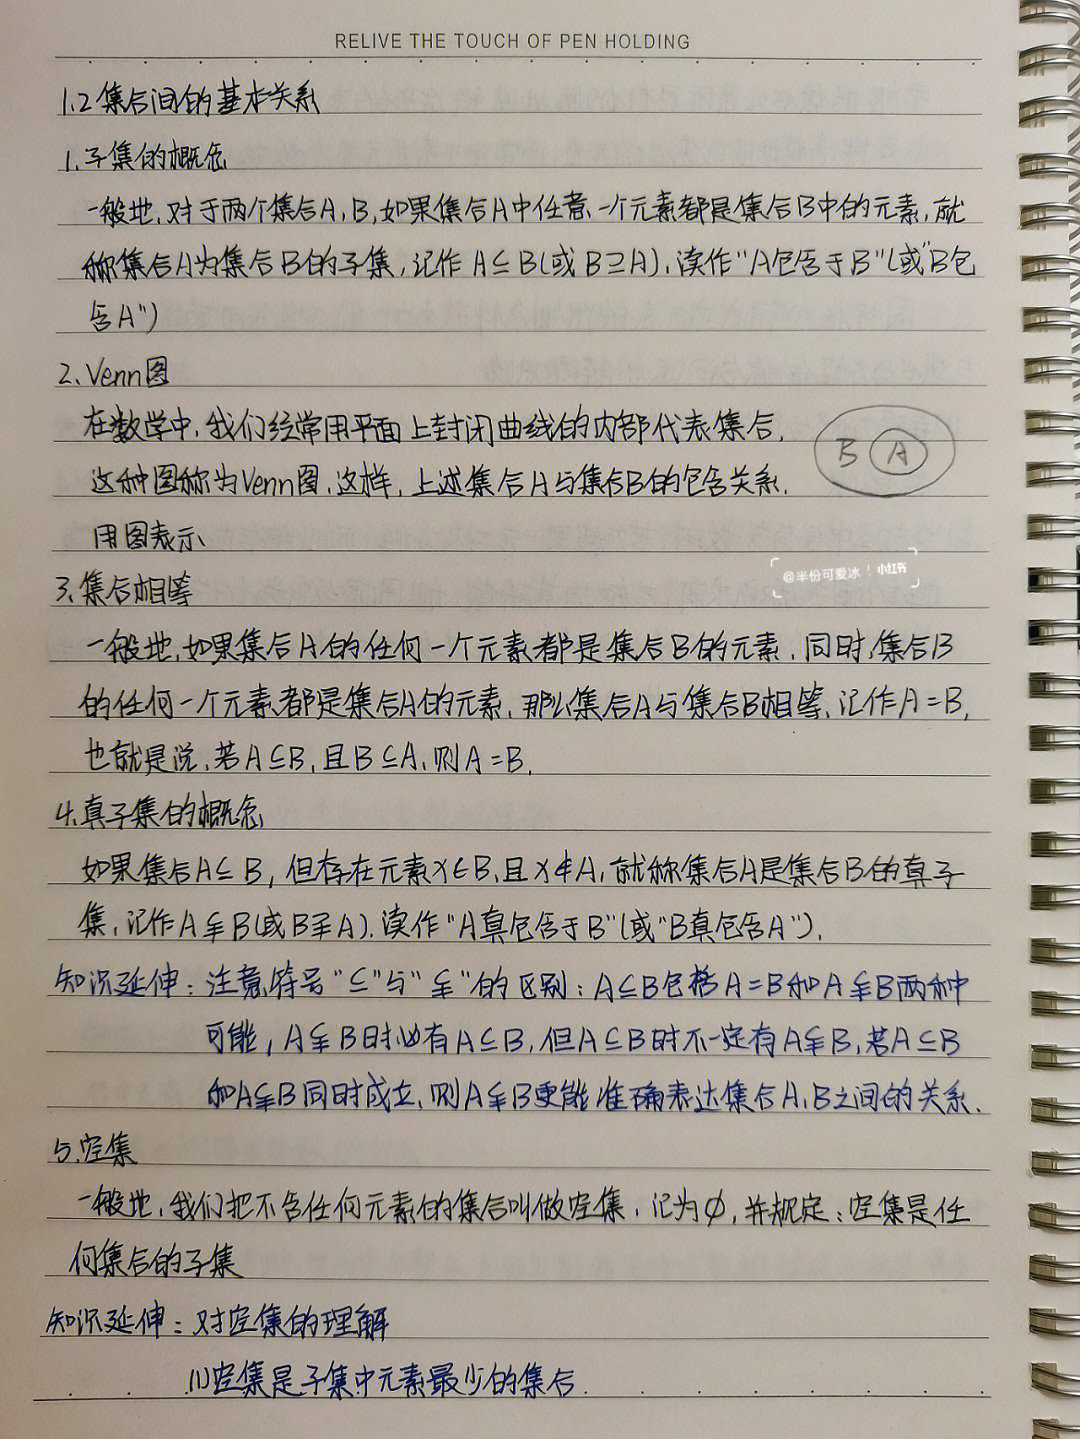 RELIVE THE TOUCH OF PEN HOLDING
1.2集合间的基本关系
1.子集的概念
一般地,对于两个集合A,B,如果集合A中任意一个元素都是集合B中的元素,就
称集合A为集合B的子集,记作 A⊆B(或 B⊇A),读作“A包含于B”(或“B包
含A”)
2.Venn图
在数学中,我们经常用平面上封闭曲线的内部代表集合,
这种图称为Venn图,这样,上述集合A与集合B的包含关系,
用图表示
B A
@半份可爱冰 小红书
3.集合相等
一般地,如果集合A的任何一个元素都是集合B的元素,同时,集合B
的任何一个元素都是集合A的元素,那么集合A与集合B相等,记作A=B,
也就是说,若A⊆B,且B⊆A,则A=B,
4.真子集的概念
如果集合A⊆B,但存在元素x∈B,且x∉A,就称集合A是集合B的真子
集,记作A⫋B(或B⫌A).读作“A真包含于B”(或“B真包含A”),
知识延伸:注意符号“⊆”与“⫋”的区别:A⊆B包括A=B和A⫋B两种
可能,A⫋B时必有A⊆B,但A⊆B时不一定有A⫋B,若A⊆B
和A⫋B同时成立,则A⫋B更能准确表达集合A,B之间的关系.
5.空集
一般地,我们把不含任何元素的集合叫做空集,记为∅,并规定:空集是任
何集合的子集
知识延伸:对空集的理解
(1)空集是子集中元素最少的集合